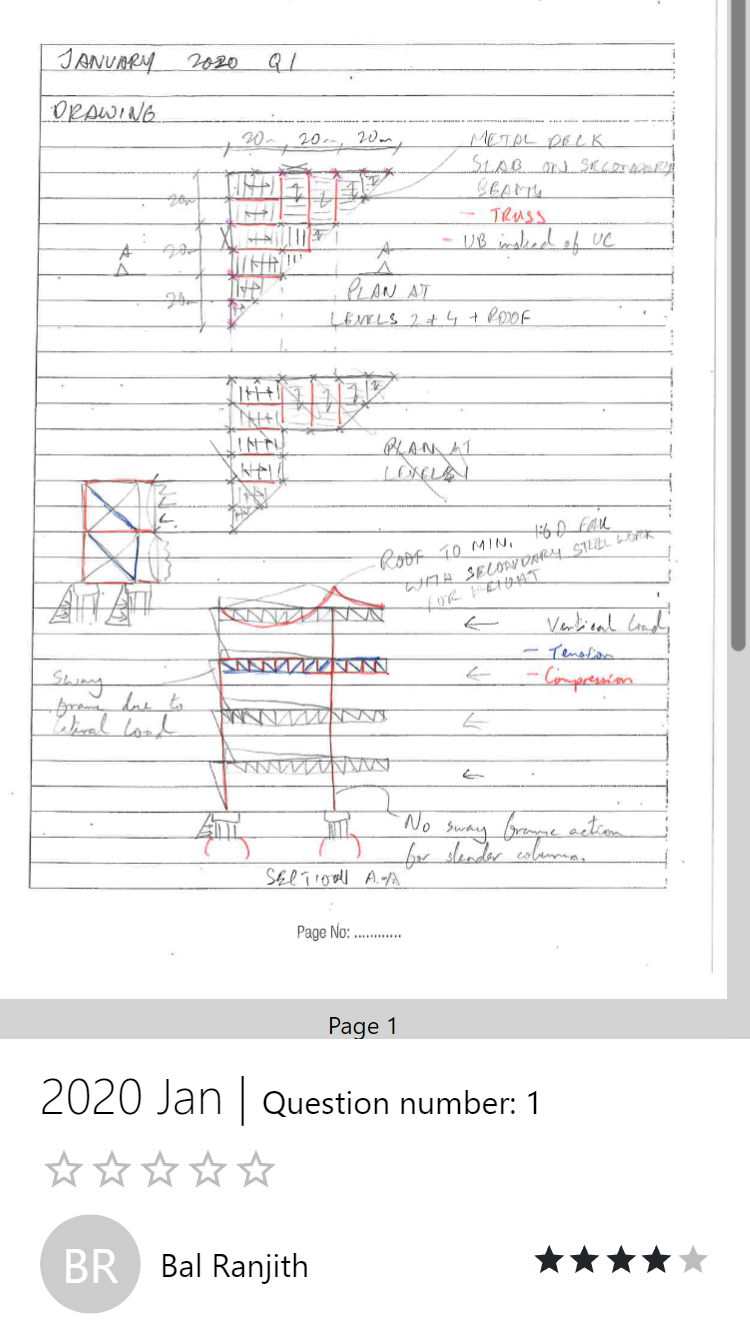 JANUARY 2020 Q1
DRAWING
20m 20m 20m
METAL DECK
SLAB ON SECONDARY
BEAMS
- TRUSS
- UB instead of UC
20m
20m
20m
A
A
PLAN AT
LEVELS 2 + 4 + ROOF
PLAN AT
LEVELS 1
ROOF TO MIN. 1:60 FALL
WITH SECONDARY STEELWORK
FOR HEIGHT
Vertical load
- Tension
- Compression
Sway
frame due to
lateral load
No sway frame action
for slender column.
SECTION A-A
Page No: ............
Page 1
2020 Jan | Question number: 1
BR
Bal Ranjith